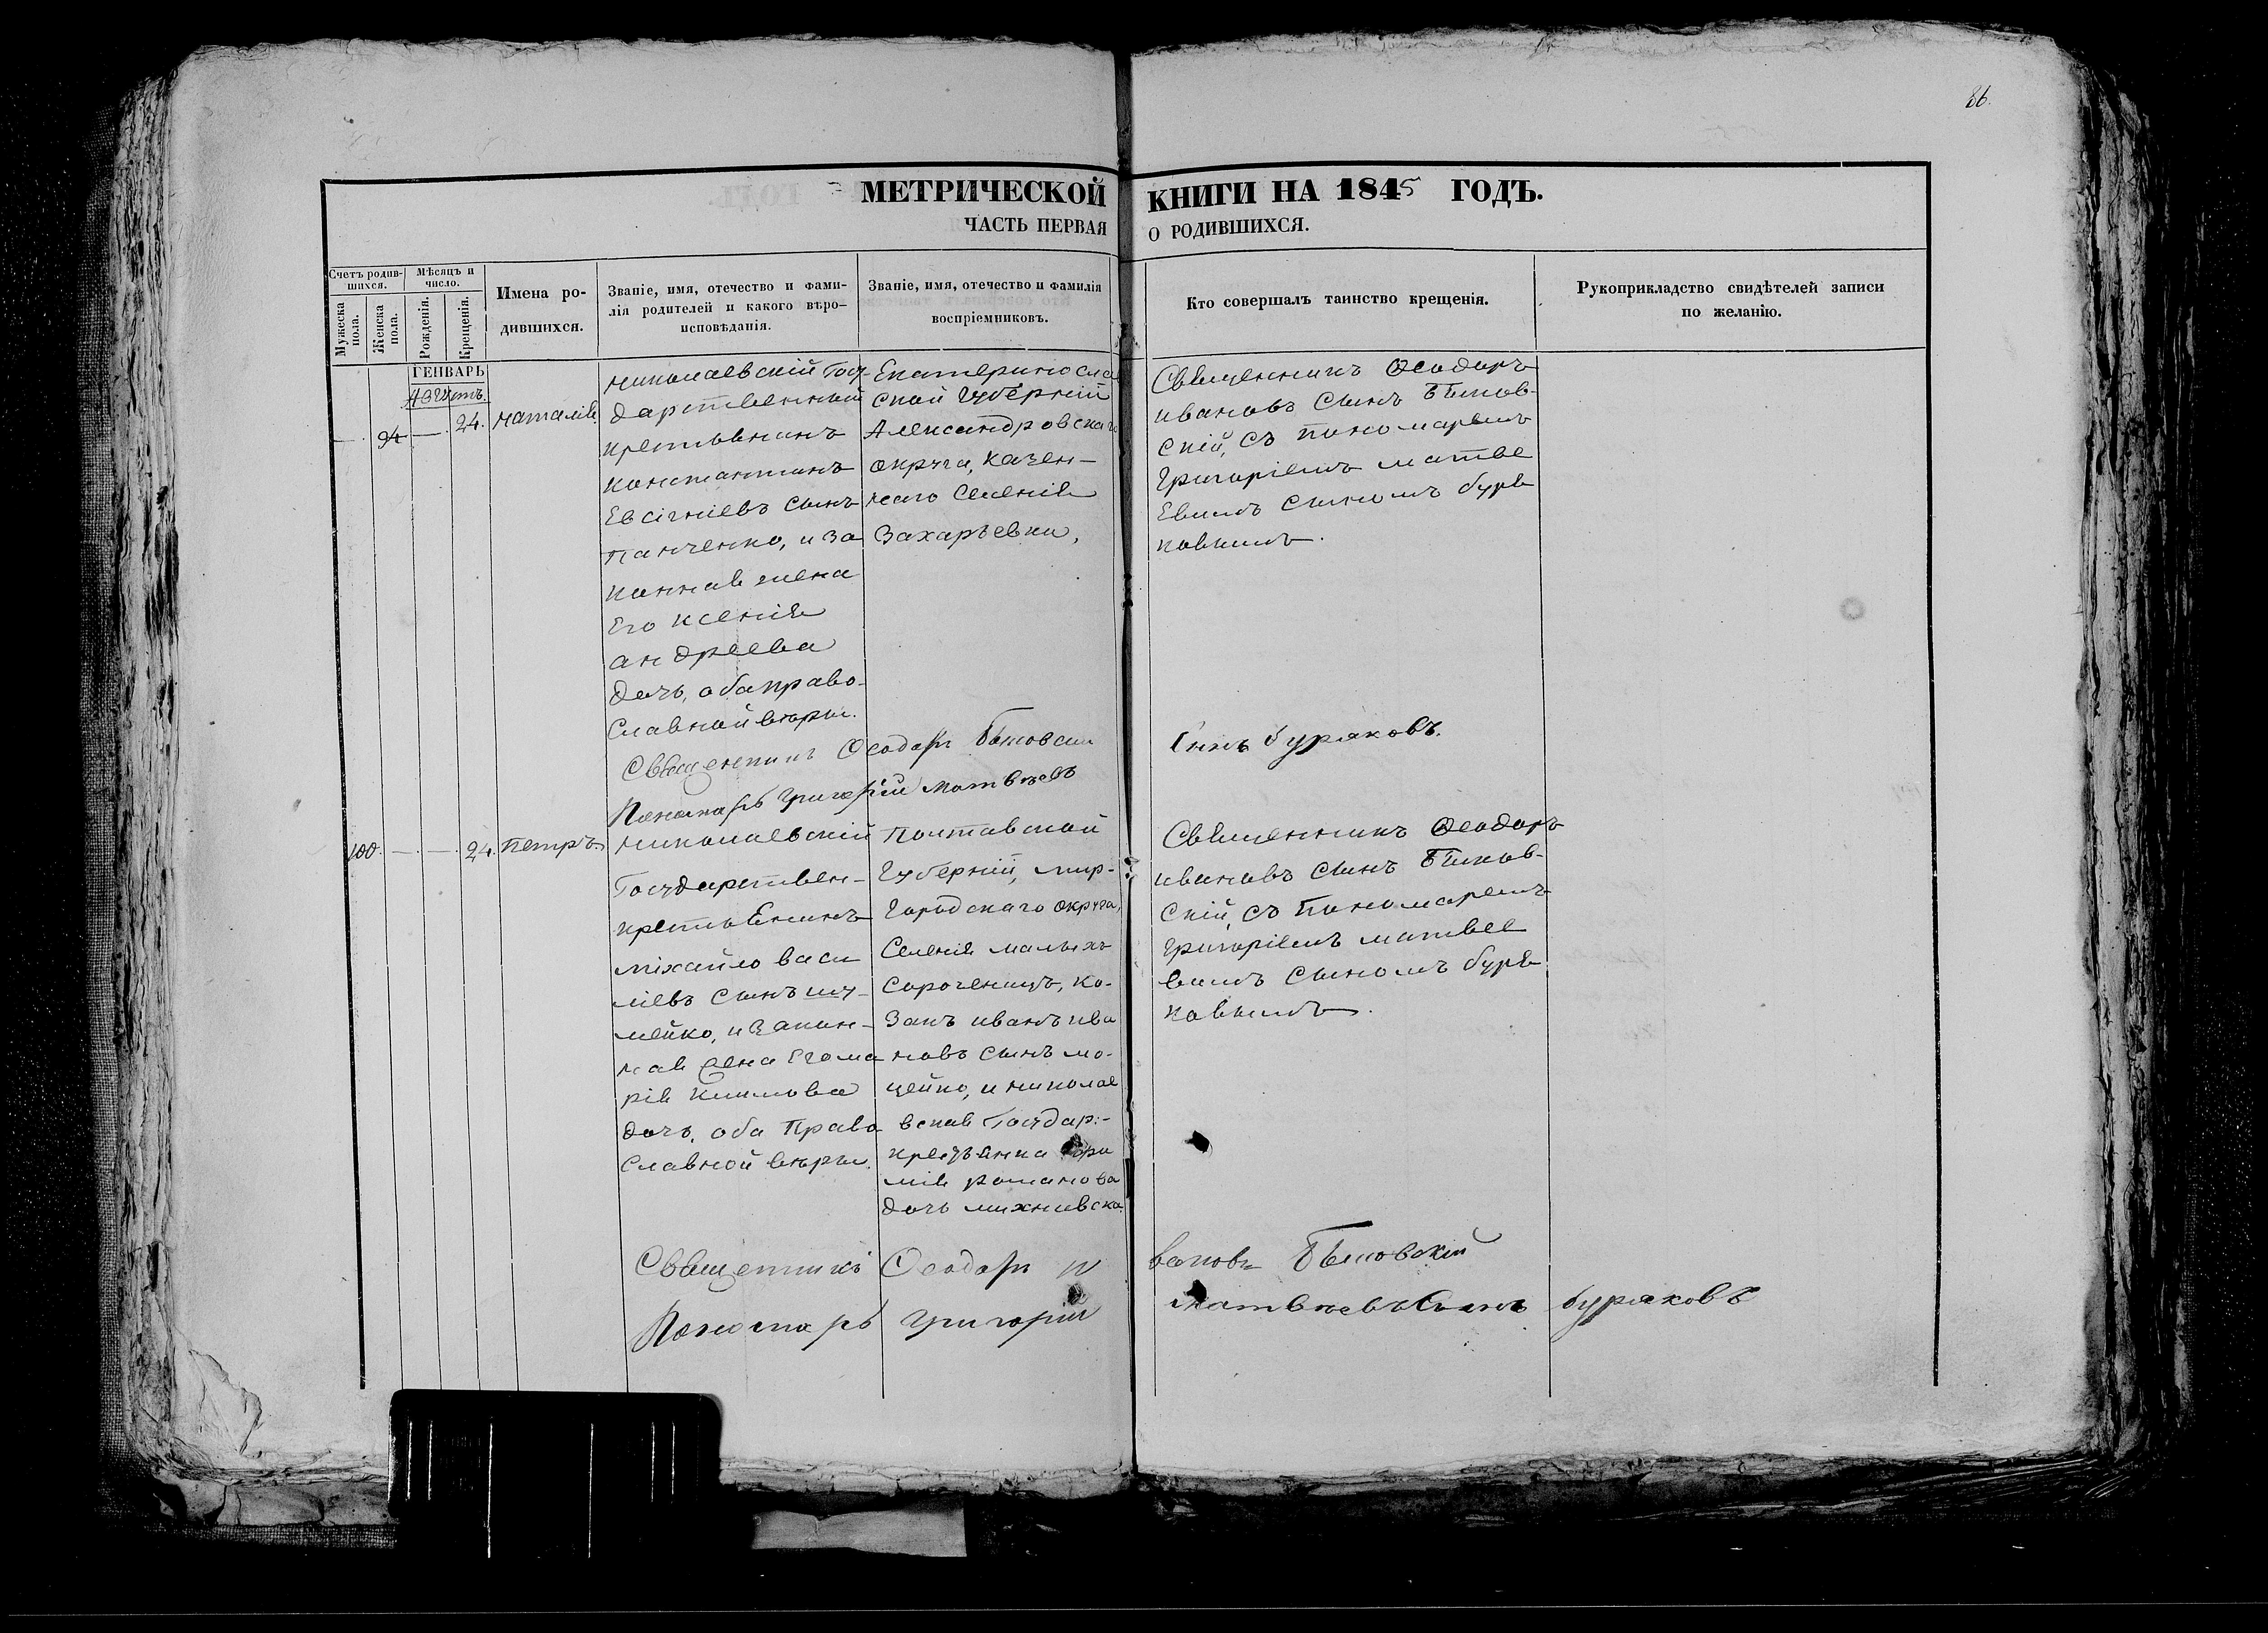 86.
МЕТРИЧЕСКОЙ КНИГИ НА 1845 ГОДЪ.
ЧАСТЬ ПЕРВАЯ О РОДИВШИХСЯ.
Счетъ родив-
шихся.
Мужеска пола.
Женска пола.
Мѣсяцъ и
число.
Рожденія.
Крещенія.
Имена ро-
дившихся.
Званіе, имя, отечество и фами-
лія родителей и какого вѣро-
исповѣданія.
Званіе, имя, отечество и фамилія
воспріемниковъ.
Кто совершалъ таинство крещенія.
Рукоприкладство свидѣтелей записи
по желанію.
ГЕНВАРЬ
Августъ.
— 94 — 24. Наталія
николаевскій Госу-
дарственный
крестьянинъ
константинъ
Евсігніевъ сынъ
Панченко, и за
конная жена
Его ксенія
андреева
дочь, оба право-
Славной вѣры.
Екатериносла
ской Губерніи
Александровскаго
округа, казен-
наго Селенія
Захарьевки,
Священникъ Ѳеодоръ
ивановъ сынъ Бѣлов-
скій, съ пономаремъ
Григоріемъ матве
Евымъ сыномъ буря
ковымъ.
Священникъ Ѳеодоръ
Пономарь Григорій Матвѣевъ Сынъ буряковъ.
100. — — 24. Петръ.
николаевскій
Государствен-
крестьЕнинъ
михайло васи
ліевъ сынъ шу-
мейко, и закон-
ная жена Его ма
рія Климова
дочь, оба Право
Славной вѣры.
Полтавской
Губерніи, мир-
Городскаго округа,
Селенія малыхъ
Сороченцъ, ко-
Закъ иванъ ива
новъ сынъ мо-
цейко, и николае
вская Государ:-
романова
дочь
Священникъ Ѳеодоръ
ивановъ сынъ Бѣлов-
скій съ Пономаремъ
Григоріемъ матвее
вымъ сыномъ буря
ковымъ.
Священникъ Ѳеодоръ Ивановъ
Пономарь Григорій Матвѣевъ Сынъ буряковъ